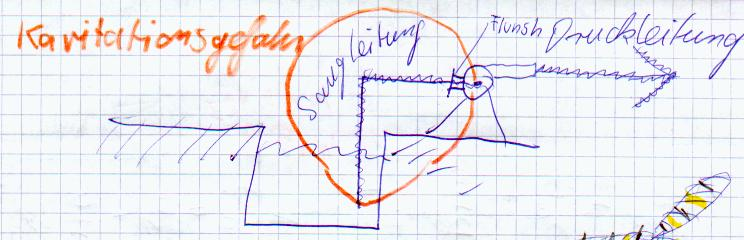 Kavitationsgefahr
Saugleitung
Flunsh
Druckleitung